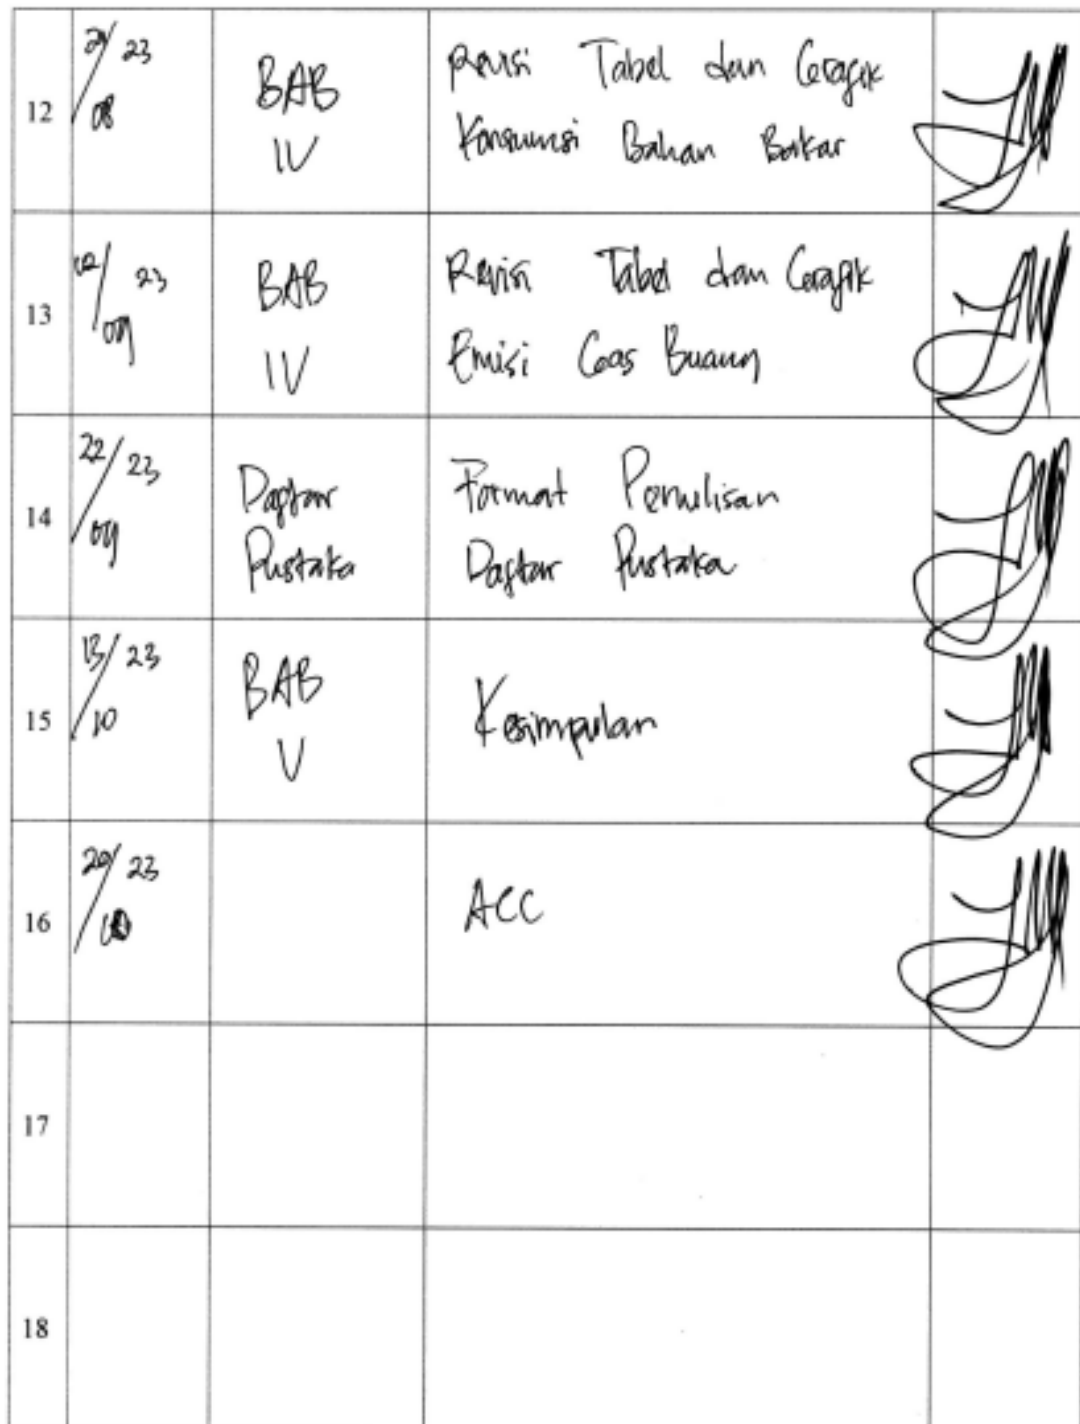 23
12 08 BAB IV Revisi Tabel dan Grafik
Konsumsi Bahan Bakar
13 02/09 23 BAB IV Revisi Tabel dan Grafik
Emisi Gas Buang
14 22/09 23 Daftar Pustaka Format Penulisan
Daftar Pustaka
15 13/10 23 BAB V Kesimpulan
16 20/10 23 ACC
17
18